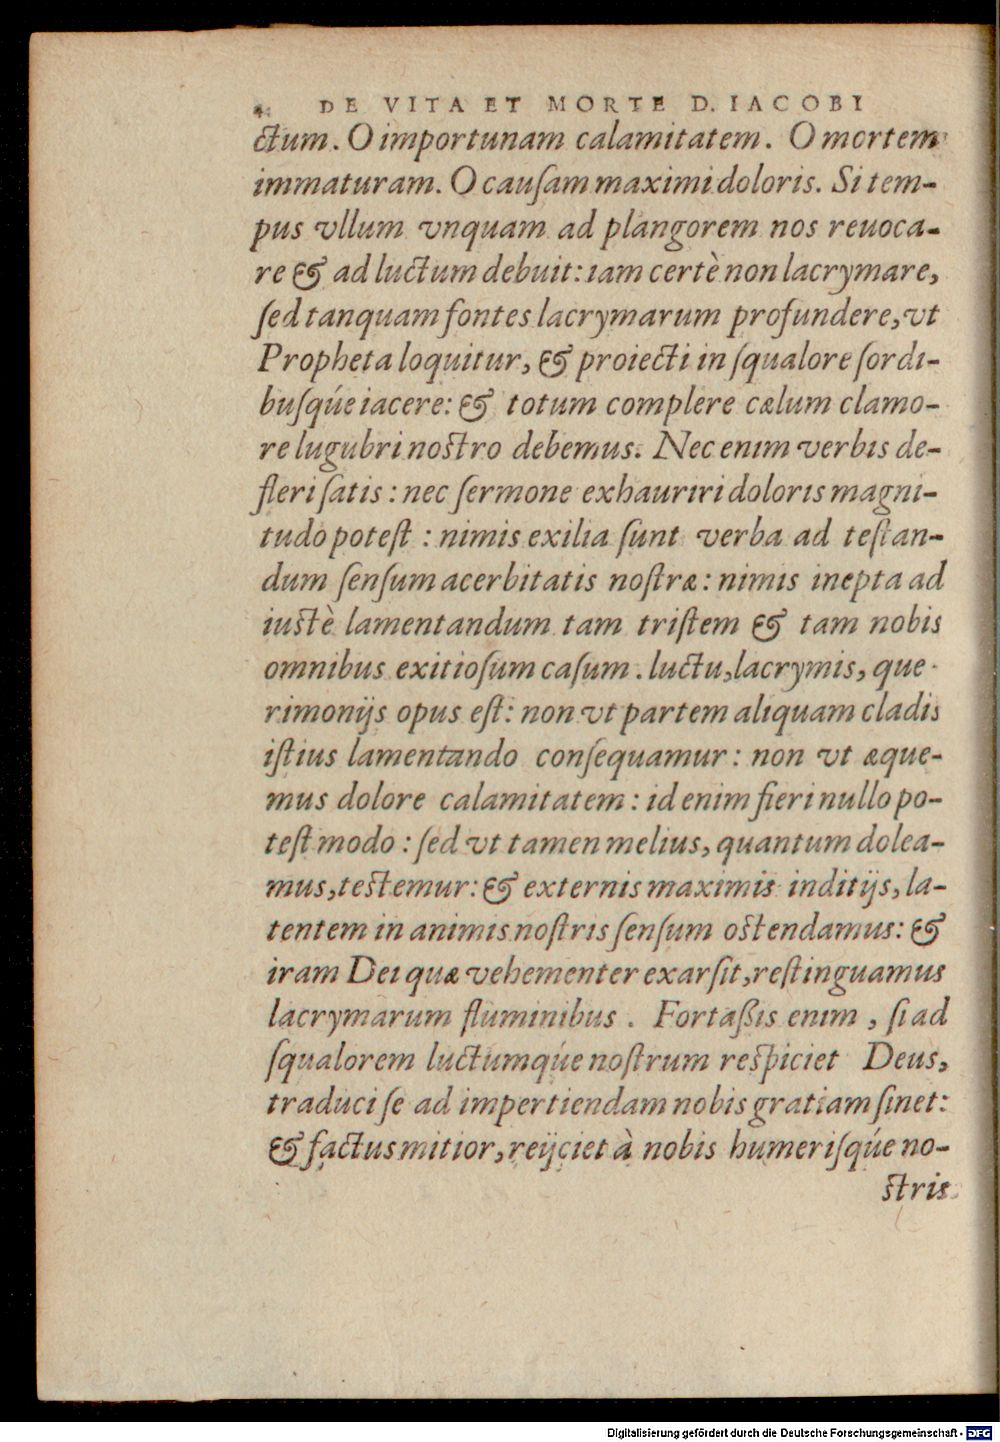 4 DE VITA ET MORTE D. IACOBI
ctum. O importunam calamitatem. O mortem
immaturam. O cauſam maximi doloris. Si tem-
pus vllum vnquam ad plangorem nos reuoca-
re & ad luctum debuit: iam certè non lacrymare,
ſed tanquam fontes lacrymarum profundere, vt
Propheta loquitur, & proiecti in ſqualore ſordi-
buſqúe iacere: & totum complere cælum clamo-
re lugubri nostro debemus. Nec enim verbis de-
fleri ſatis: nec ſermone exhauriri doloris magni-
tudo poteſt: nimis exilia ſunt verba ad teſtan-
dum ſenſum acerbitatis noſtræ: nimis inepta ad
iustè lamentandum tam triſtem & tam nobis
omnibus exitioſum caſum. luctu, lacrymis, que-
rimonijs opus eſt: non vt partem aliquam cladis
iſtius lamentando conſequamur: non vt æque-
mus dolore calamitatem: id enim fieri nullo po-
teſt modo: ſed vt tamen melius, quantum dolea-
mus, testemur: & externis maximis inditijs, la-
tentem in animis noſtris ſenſum ostendamus: &
iram Dei quæ vehementer exarſit, reſtinguamus
lacrymarum fluminibus. Fortaßis enim, ſi ad
ſqualorem luctumqúe noſtrum reſpiciet Deus,
traduci ſe ad impertiendam nobis gratiam ſinet:
& factus mitior, reijciet à nobis humeriſqúe no-
stris
Digitalisierung gefördert durch die Deutsche Forschungsgemeinschaft - DFG